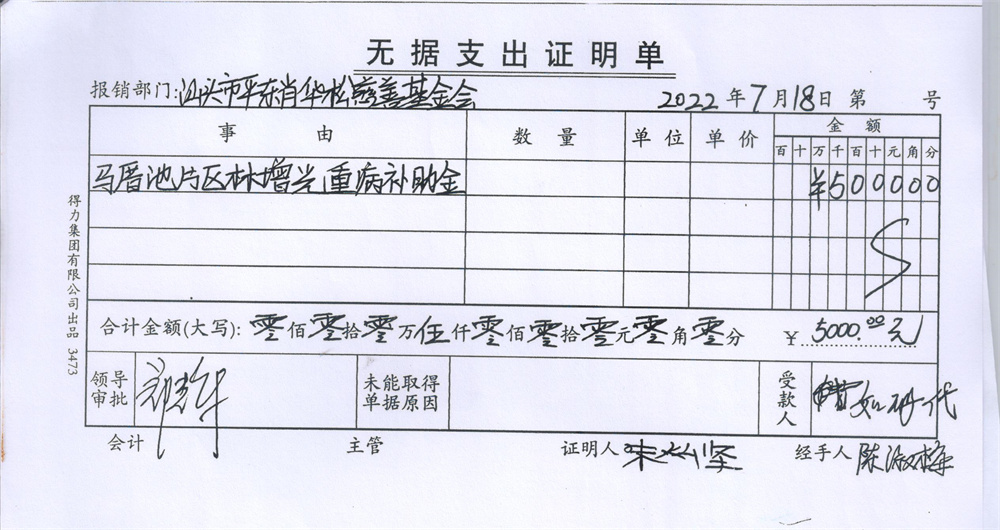 无据支出证明单
报销部门:汕头市平东肖华松慈善基金会 2022年7月18日 第 号
事由 数量 单位 单价 金额
百十万千百十元角分
马厝池片区林增光重病补助金 ¥500000
合计金额(大写): 零佰零拾零万伍仟零佰零拾零元零角零分 ¥5000.00元
领导审批 未能取得单据原因 受款人 如 代
会计 主管 证明人 坚 经手人 陈淑梅
得力集团有限公司出品 3473